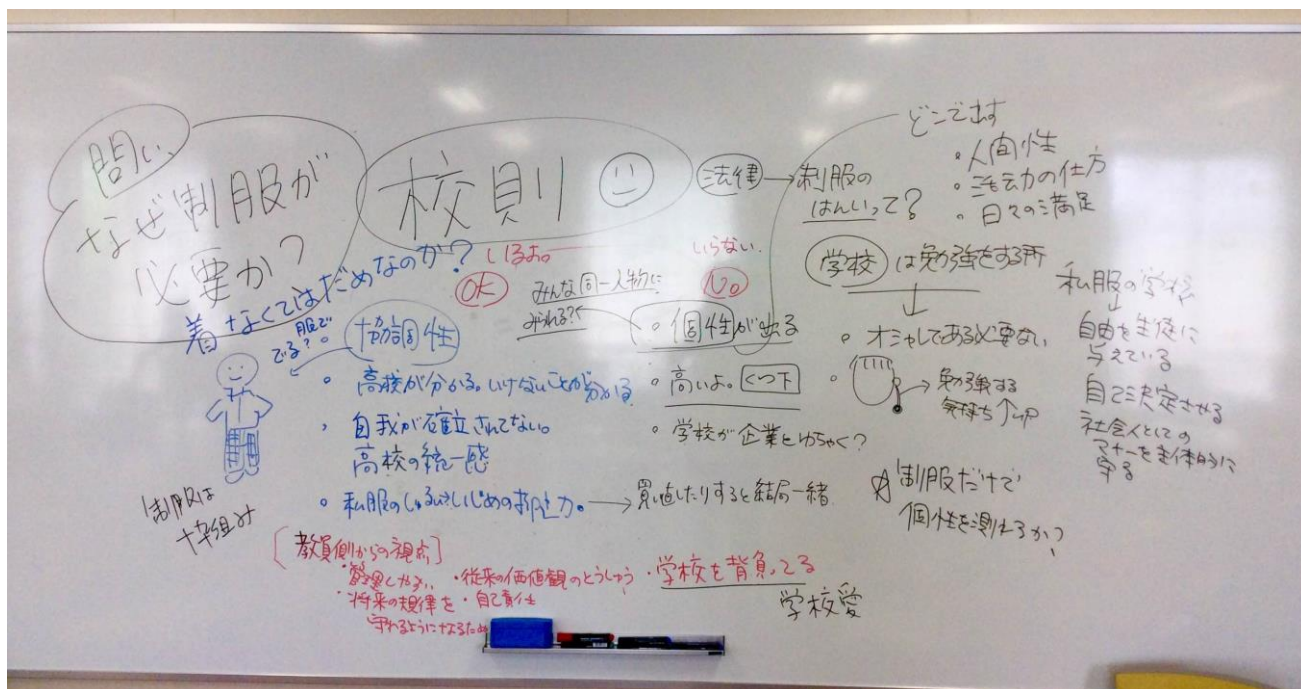 問い
なぜ制服が
必要か?
校則
法律→制服の
はんいって?
どこで出す
・人間性
・活動の仕方
・日々の満足
着なくてはだめなのか?
いるよ。
いらない。
OK
No
みんな同一人物に
みられる??
学校は勉強をする所
私服の学校
↓
自由を生徒に
与えている
自己決定させる
社会人としての
マナーを主体的に
守る
服で
でる?
協調性
・高校が分かる。いけないことが分かる
・自我が確立されてない。
高校の統一感
・私服のしゅるい、いじめの抑止力。→買い値したりすると結局一緒
・個性が出る
・高いよ。くつ下
・学校が企業とゆちゃく?
・オシャレである必要ない
→勉強する
気持ち↑up
☆制服だけで
個性を測れるか?
制服は
枠組み
[教員側からの視点]
・管理しやすい
・従来の価値観のとうしゅう
・学校を背負ってる
・将来の規律を
守れるようになるため
・自己責任
学校愛